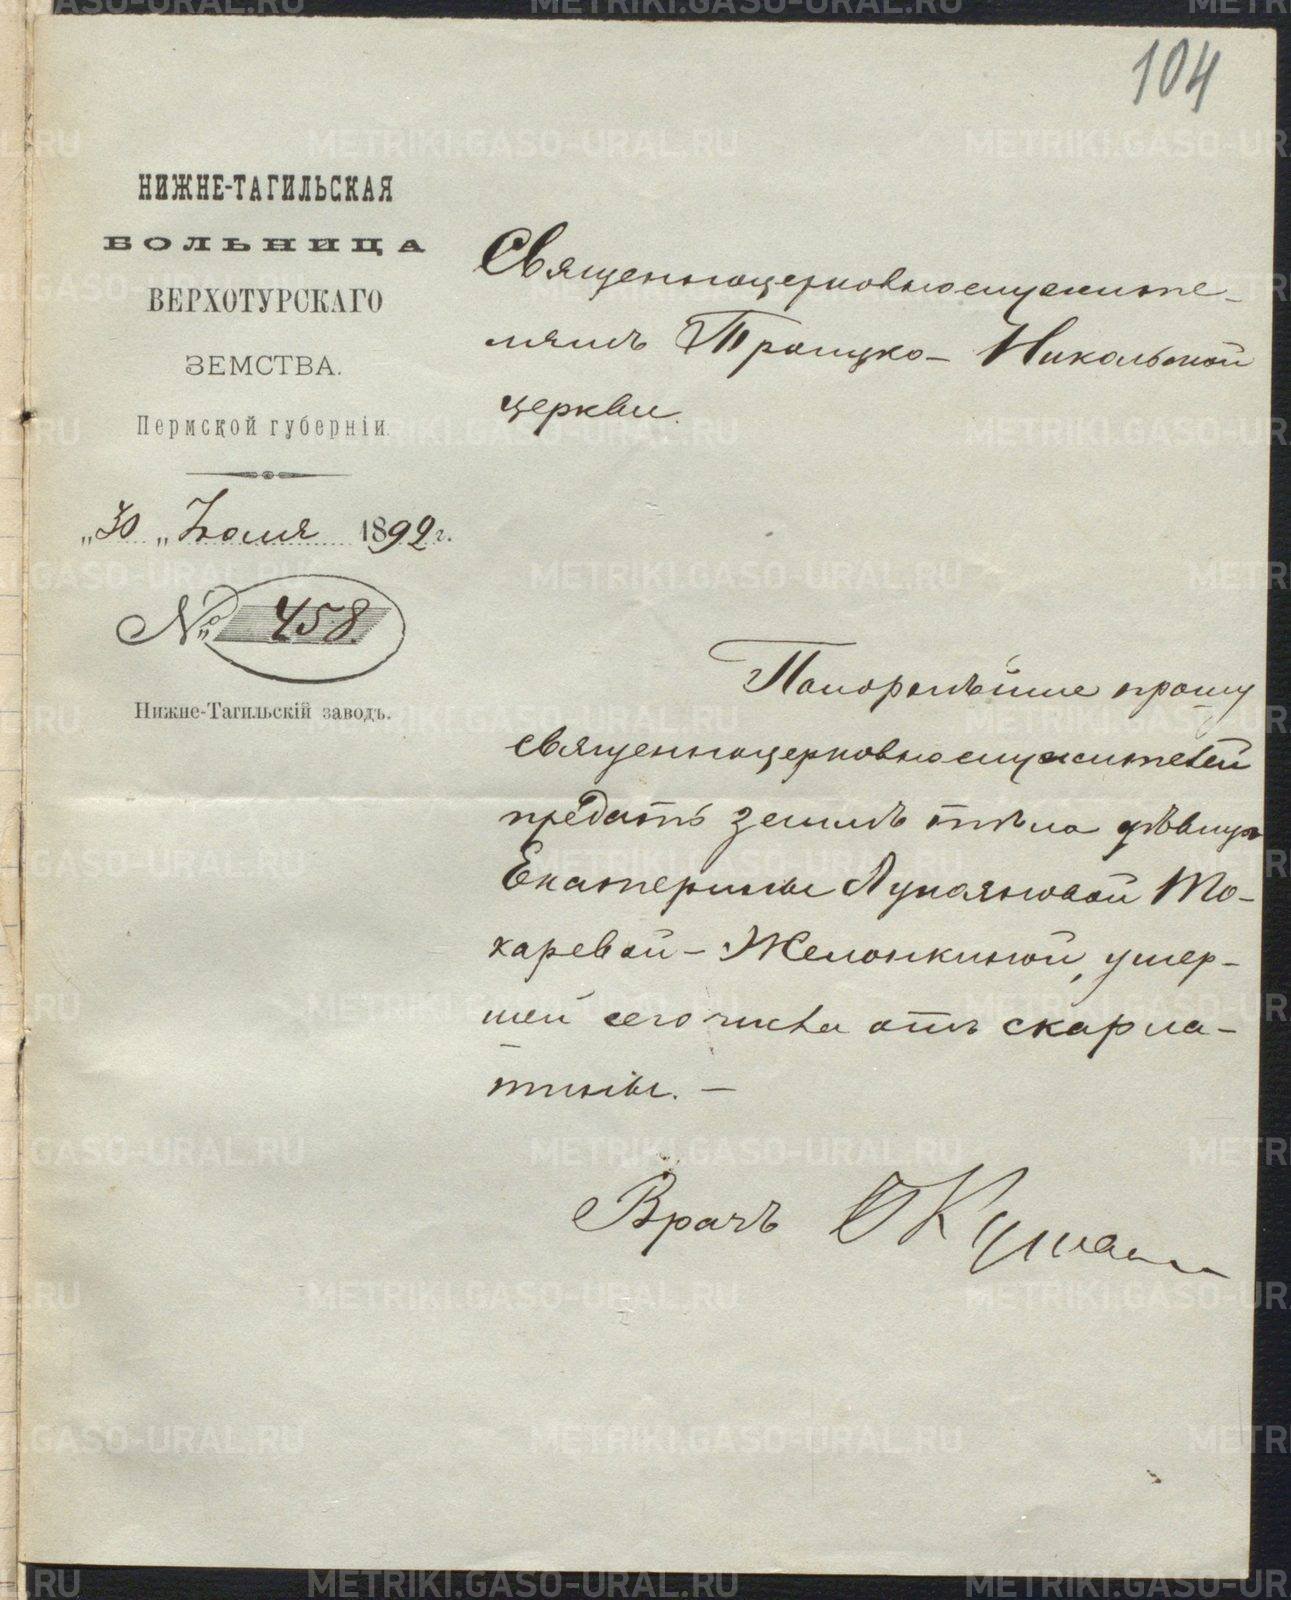 104
НИЖНЕ-ТАГИЛЬСКАЯ
БОЛЬНИЦА
ВЕРХОТУРСКАГО
ЗЕМСТВА.
Пермской губерніи.
„30 „ Іюля 1892 г.
№ 458.
Нижне-Тагильскій заводъ.
Священноцерковнослужите-
лямъ Троицко- Никольской
церкви.
Покорнѣйше прошу
священноцерковнослужителей
предать землѣ тѣло дѣвицы
Екатерины Лукояновой То-
каревой - Желонкиной, умер-
шей сего числа отъ скарла-
тины. -
Врачъ
METRIKI.GASO-URAL.RU